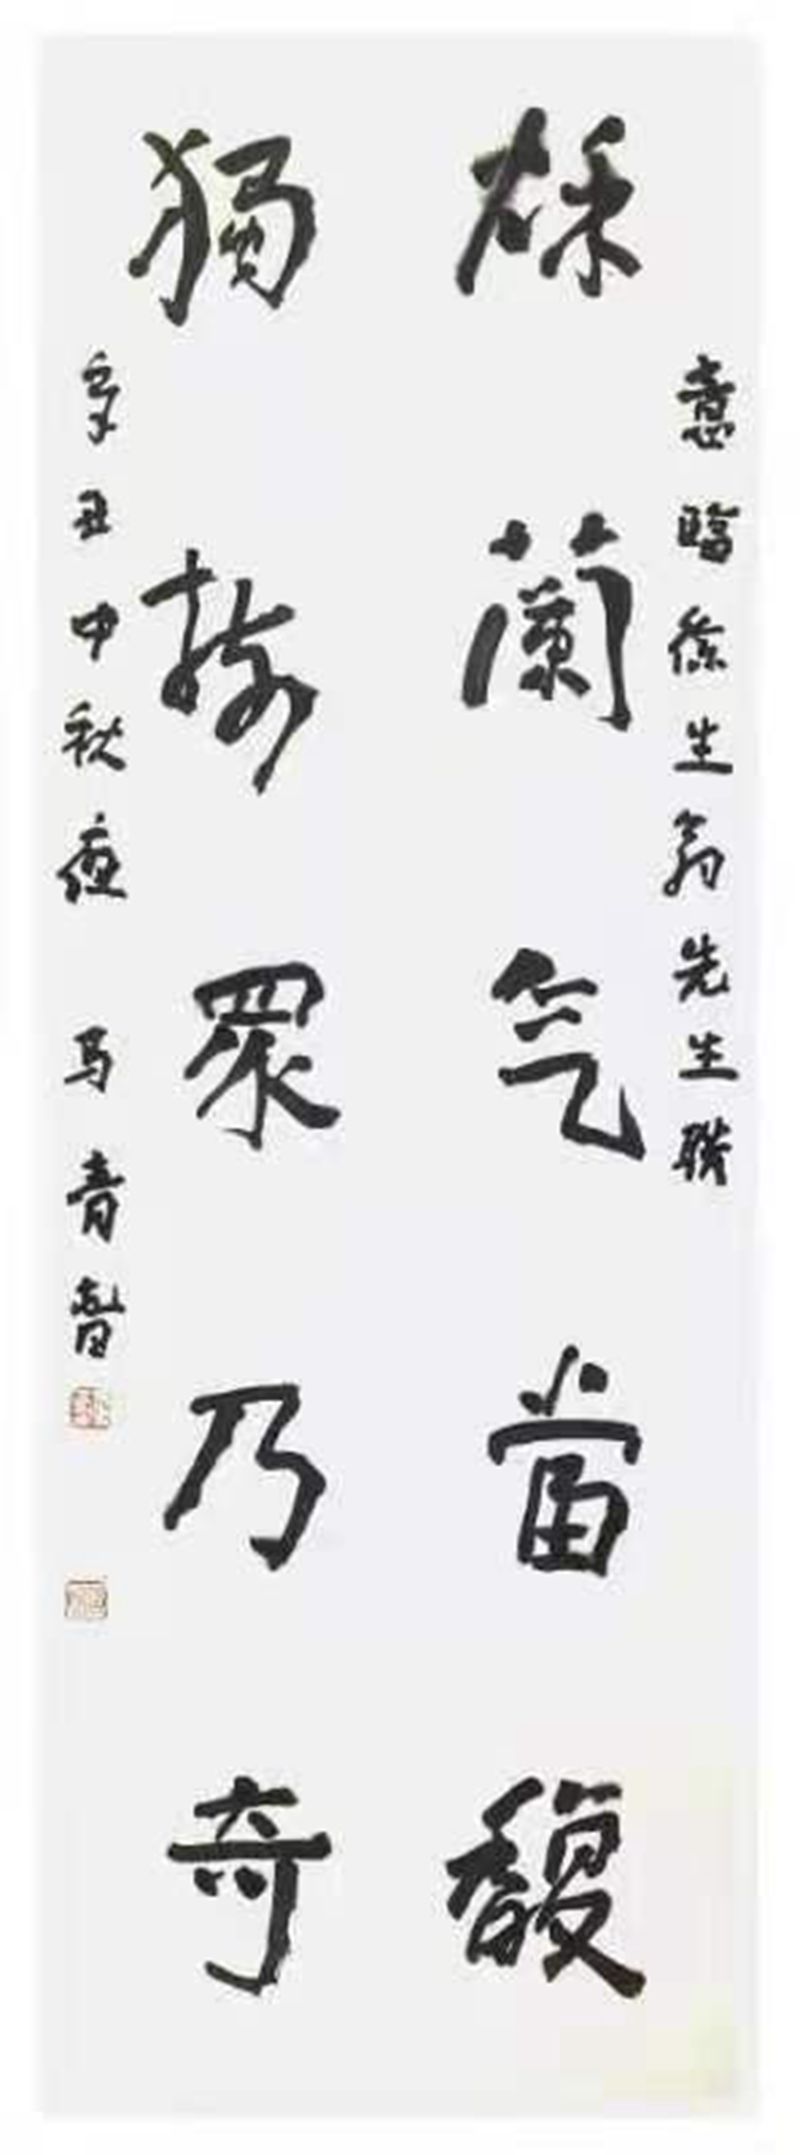 意臨徐生翁先生聯
秌蘭气當馥
獨樹眾乃奇
辛丑中秋夜 马青